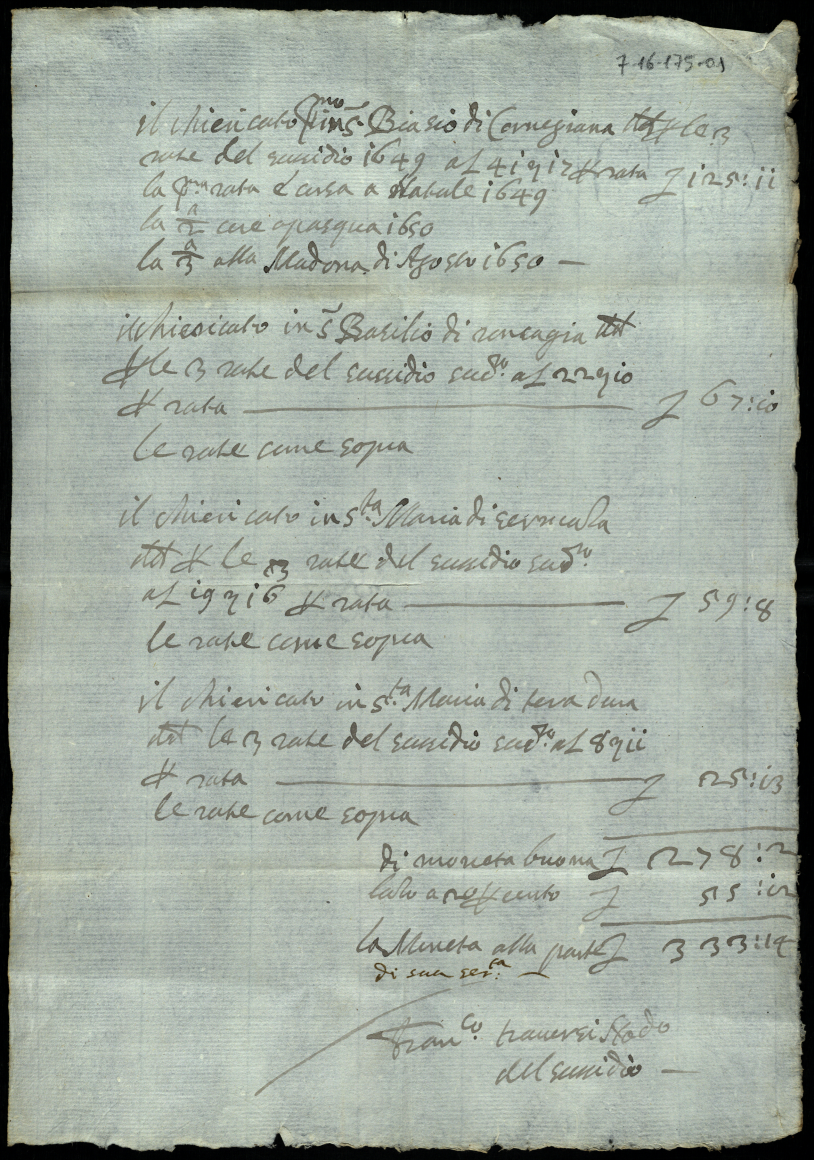 7-16-175-01
il chiericato p.mo in S. Biasio di Cornegiana le 3
rate del sussidio 1649 a £ 41 q 17 rata £ 125:11
la p.ma rata è corsa a Natale 1649
la 2.a core a pasqua 1650
la 3.a alla Madona di Agosto 1650 —
il chiericato in S. Basilio di roncagia
le 3 rate del sussidio sud.to a £ 22 q 10
rata — £ 67:10
le rate come sopra
il chiericato in S.ta Maria di
le 3 rate del sussidio sud.to
a £ 19 q 16 rata — £ 59:8
le rate come sopra
il chiericato in S.ta Maria di tera dura
le 3 rate del sussidio sud.to a £ 8 q 11
rata — £ 25:13
le rate come sopra
di moneta buona £ 278:2
a 20 cento £ 55:12
la Moneta alla parte £ 333:14
di sua ser.ta —
Fran.co traversi
del sussidio —